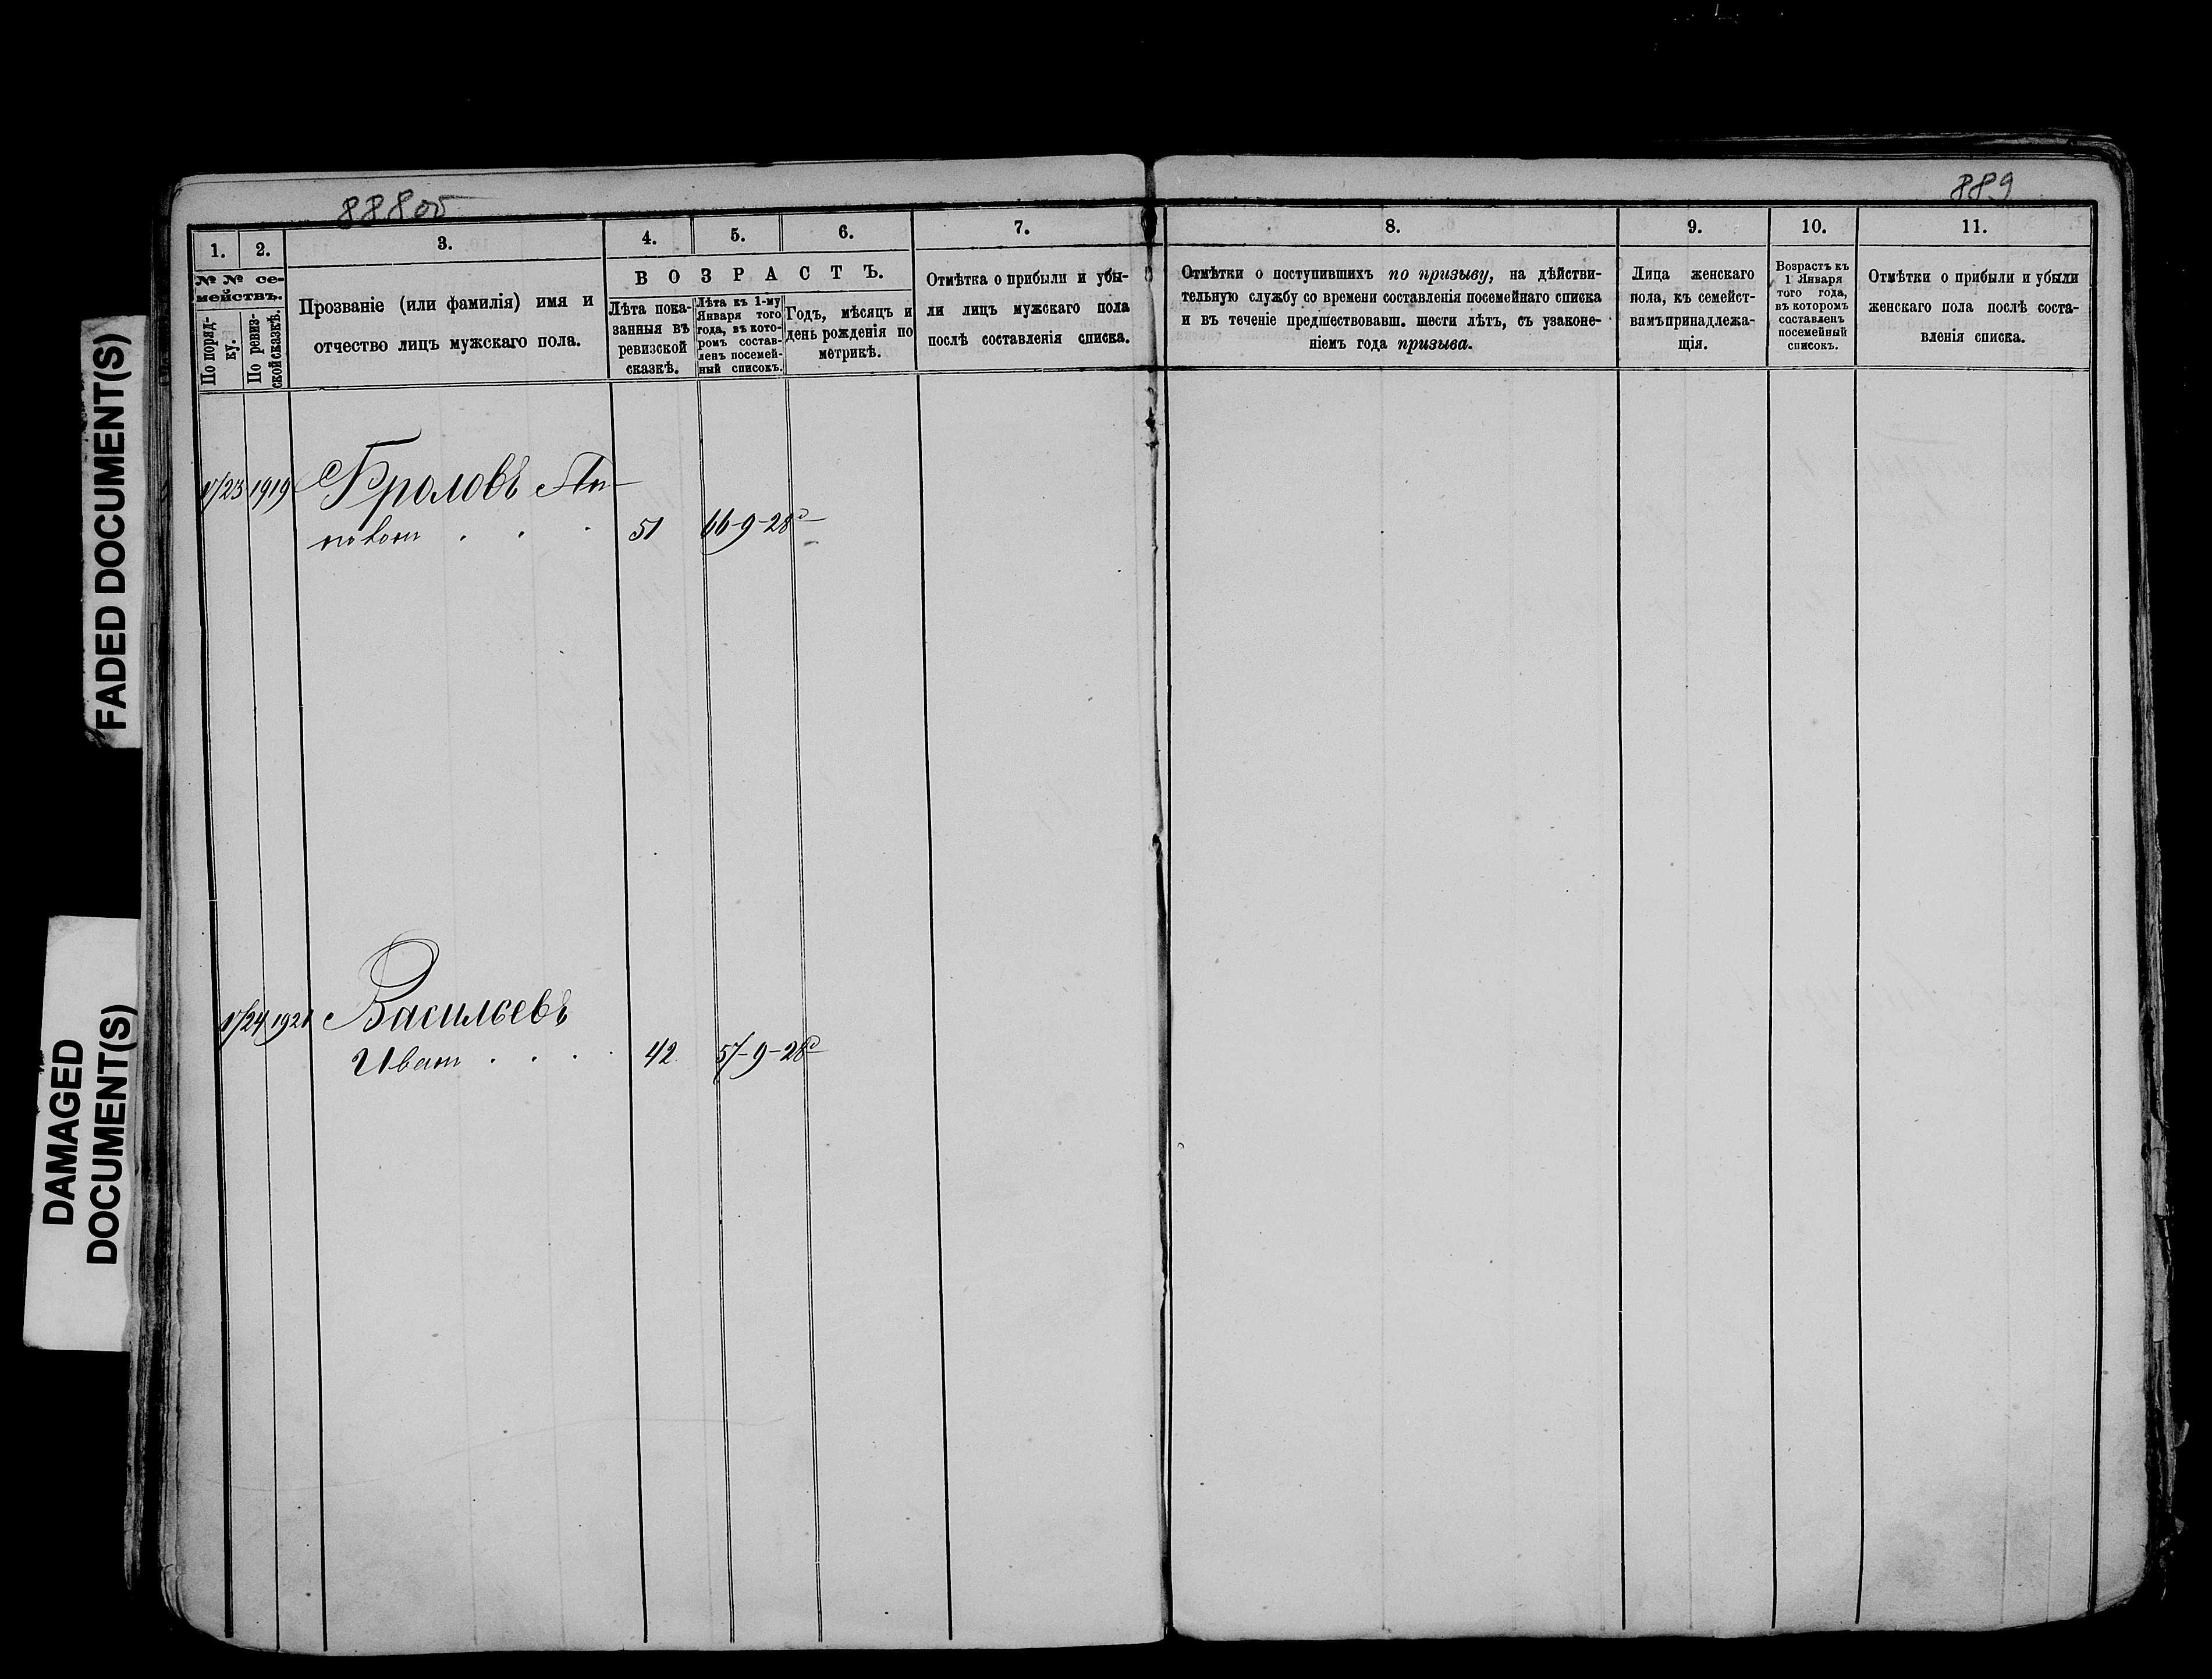 888об
889
1.
2.
3.
4.
5.
6.
7.
8.
9.
10.
11.
№ № се-
мействъ.
По поряд-
ку.
По ревиз-
ской сказкѣ.
Прозваніе (или фамилія) имя и
отчество лицъ мужскаго пола.
ВОЗРАСТЪ.
Лѣта пока-
занныя въ
ревизской
сказкѣ.
Лѣта къ 1-му
Января того
года, въ кото-
ромъ состав-
ленъ посемей-
ный списокъ.
Годъ, мѣсяцъ и
день рожденія по
метрикѣ.
Отмѣтка о прибыли и убы-
ли лицъ мужскаго пола
послѣ составленія списка.
Отмѣтки о поступившихъ по призыву, на дѣйстви-
тельную службу со времени составленія посемейнаго списка
и въ теченіе предшествовавш. шести лѣтъ, съ узаконе-
ніемъ года призыва.
Лица женскаго
пола, къ семейст-
вамъ принадлежа-
щія.
Возрастъ къ
1 Января
того года,
въ которомъ
составленъ
посемейный
списокъ.
Отмѣтки о прибыли и убыли
женскаго пола послѣ соста-
вленія списка.
1919
51 66-9-28
1921 Васильевъ
Иван 42 57-9-28
FADED DOCUMENT(S)
DAMAGED
DOCUMENT(S)